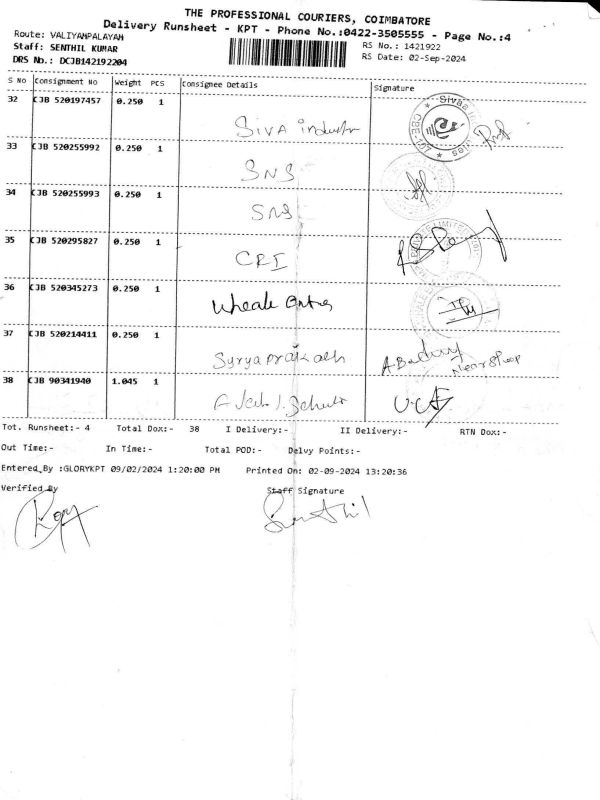 THE PROFESSIONAL COURIERS, COIMBATORE
Delivery Runsheet - KPT - Phone No.:0422-3505555 - Page No.:4
Route: VALIYAMPALAYAM
Staff: SENTHIL KUMAR
DRS No.: DCJB142192204
RS No.: 1421922
RS Date: 02-Sep-2024
S No Consignment No Weight PCS Consignee Details Signature
32 CJB 520197457 0.250 1
Siva
33 CJB 520255992 0.250 1
SNS
34 CJB 520255993 0.250 1
SNS
35 CJB 520295827 0.250 1
CRI
36 CJB 520345273 0.250 1
37 CJB 520214411 0.250 1
Near Shop
38 CJB 90341940 1.045 1
Tot. Runsheet:- 4 Total Dox:- 38 I Delivery:- II Delivery:- RTN Dox:-
Out Time:- In Time:- Total POD:- Delvy Points:-
Entered_By :GLORYKPT 09/02/2024 1:20:00 PM Printed On: 02-09-2024 13:20:36
Verified By Staff Signature
Senthil